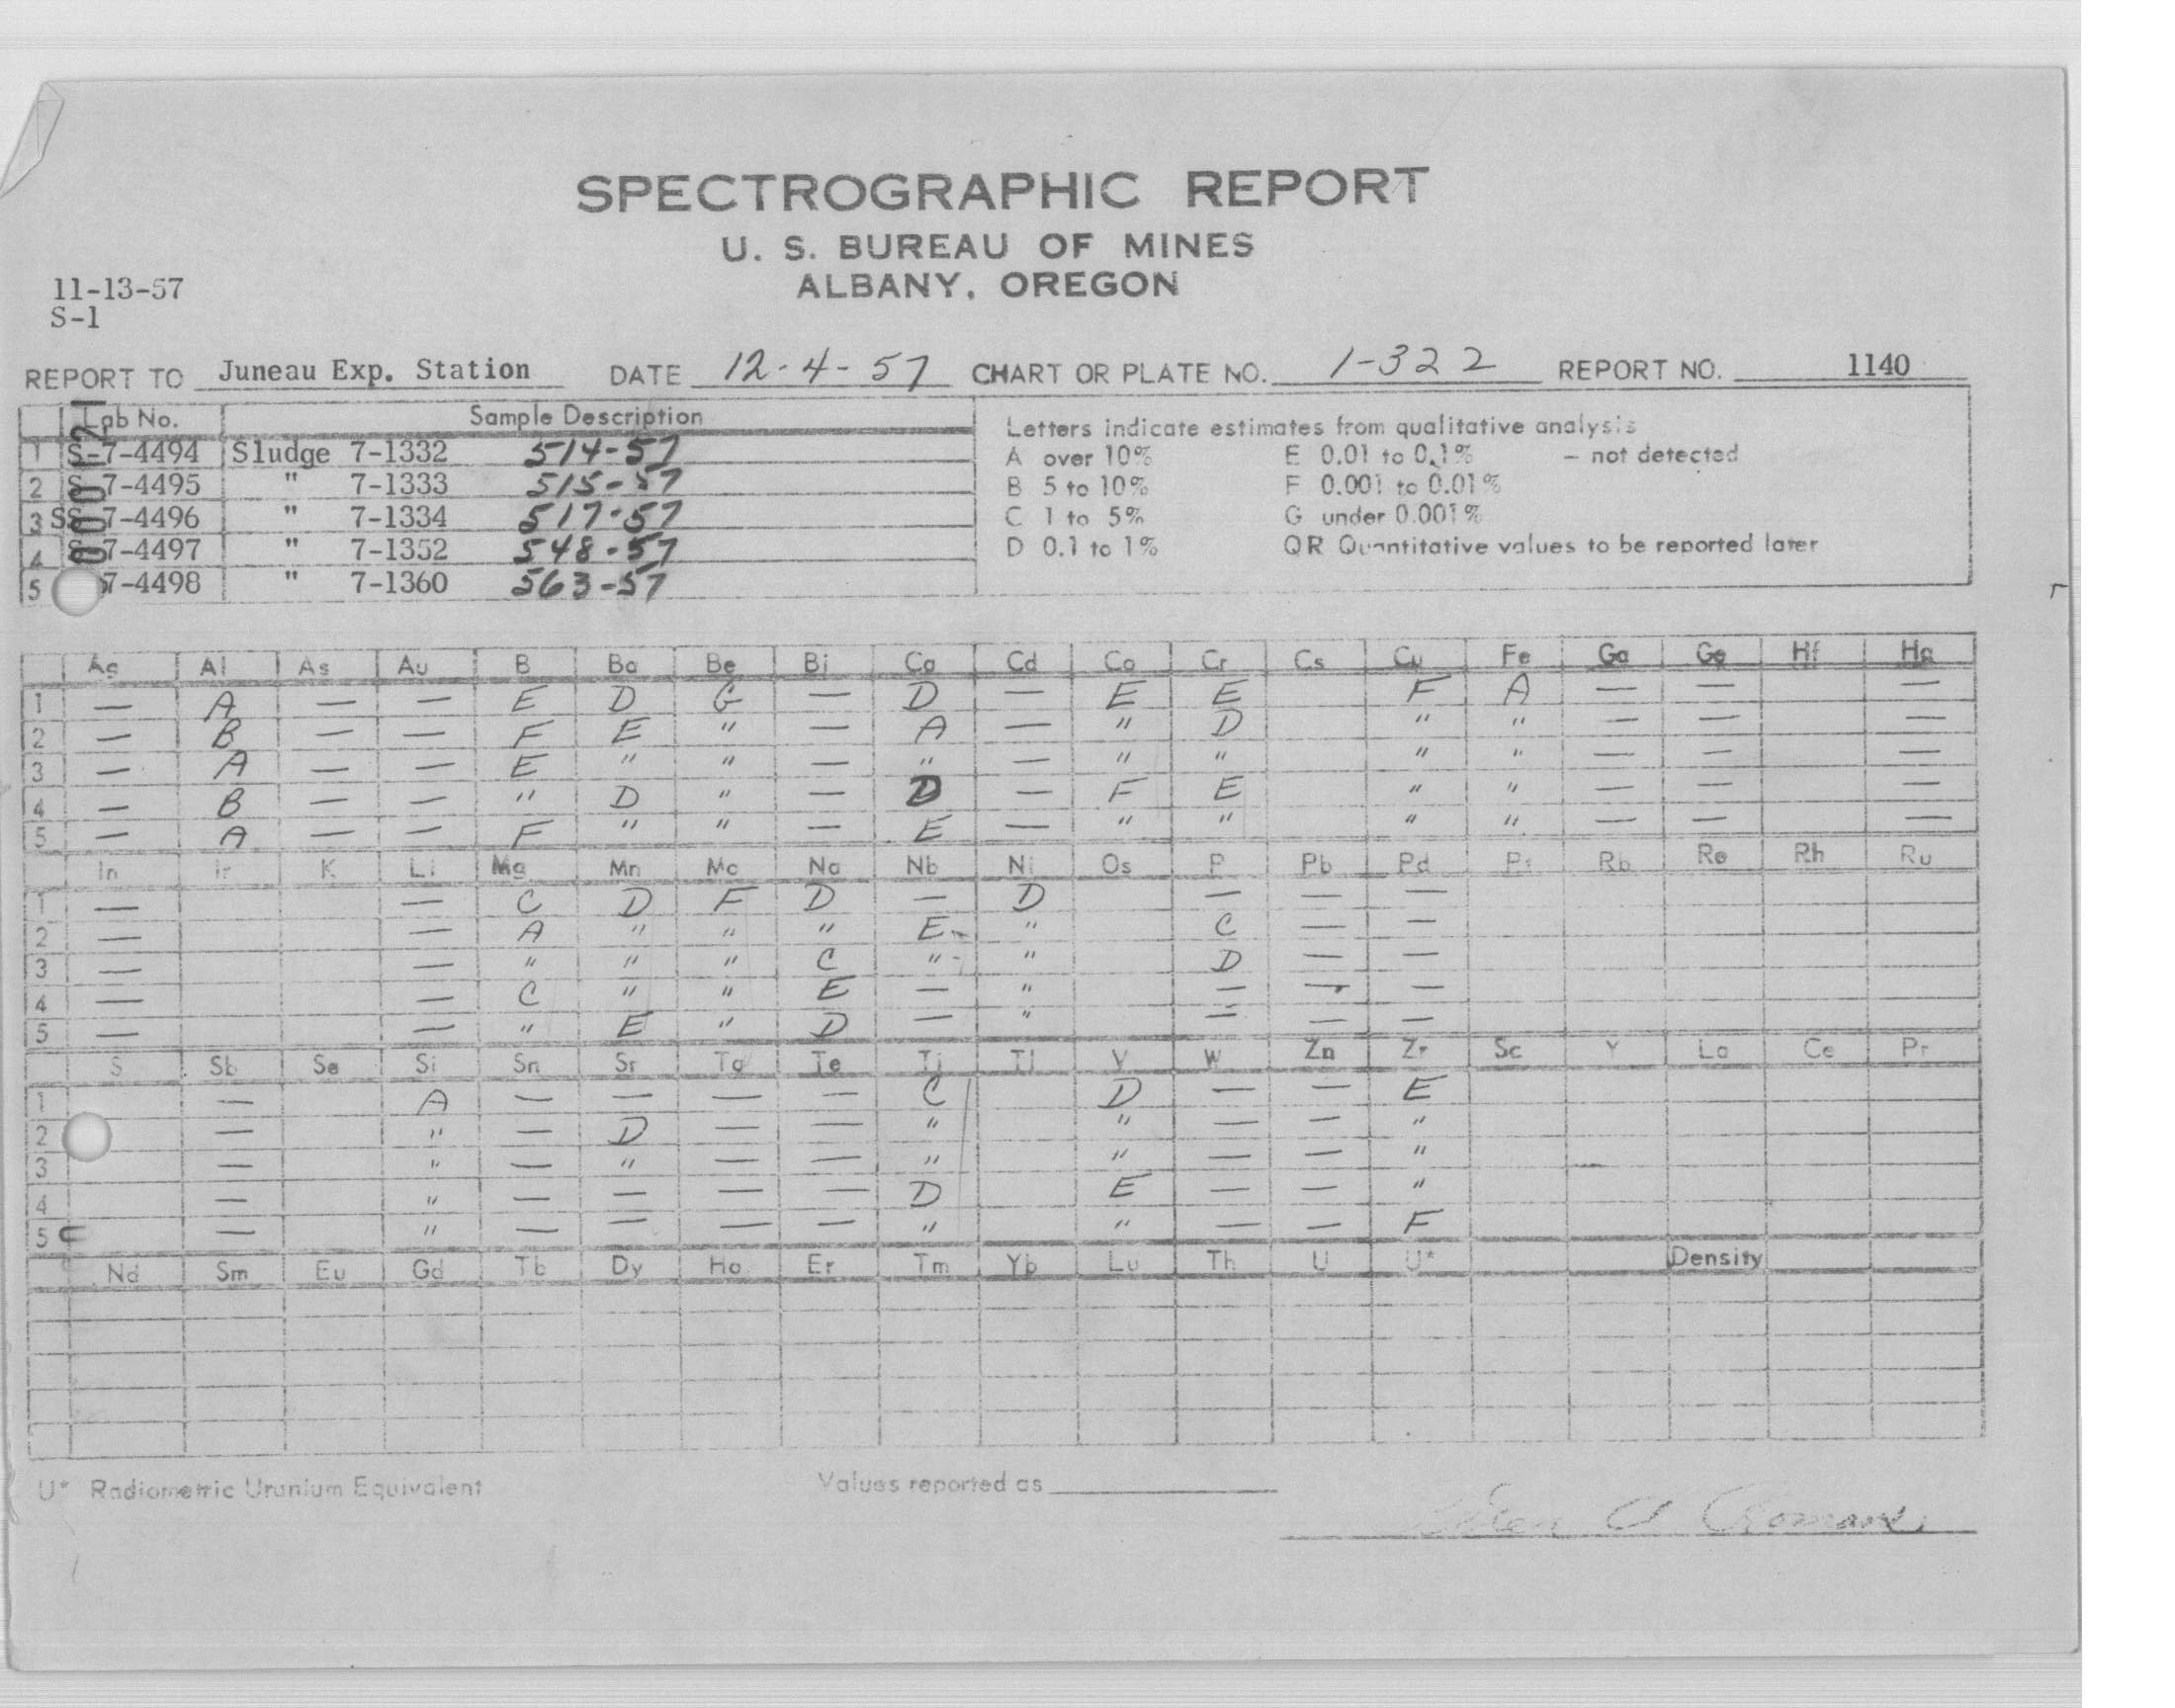 SPECTROGRAPHIC REPORT
U. S. BUREAU OF MINES
ALBANY, OREGON
11-13-57
S-1
REPORT TO Juneau Exp. Station DATE 12-4-57 CHART OR PLATE NO. 1-322 REPORT NO. 1140
Lab No. Sample Description
1 S-7-4494 Sludge 7-1332 514-57
2 S-7-4495 " 7-1333 515-57
3 7-4496 " 7-1334 517-57
4 7-4497 " 7-1352 548-57
5 7-4498 " 7-1360 563-57
Letters indicate estimates from qualitative analysis
A over 10% E 0.01 to 0.1% – not detected
B 5 to 10% F 0.001 to 0.01%
C 1 to 5% G under 0.001%
D 0.1 to 1% QR Quantitative values to be reported later
Ag Al As Au B Ba Be Bi Ca Cd Co Cr Cs Cu Fe Ga Ge Hf Hg
1 — A — — E D G — D — E E F A — — —
2 — B — — F E " — A — " D " " — — —
3 — A — — E " " — " — " " " " — — —
4 — B — — " D " — D — F E " " — — —
5 — A — — F " " — E — " " " " — — —
In Ir K Li Mg Mn Mo Na Nb Ni Os P Pb Pd Pt Rb Re Rh Ru
1 — — C D F D — D — — —
2 — — A " " " E " C — —
3 — — " " " C " " D — —
4 — — C " " E — " — — —
5 — — " E " D — " — — —
S Sb Se Si Sn Sr Ta Te Ti Tl V W Zn Zr Sc Y La Ce Pr
1 — A — — — — C D — — E
2 — " — D — — " " — — "
3 — " — " — — " " — — "
4 — " — — — — D E — — "
5 — " — — — — " " — — F
Nd Sm Eu Gd Tb Dy Ho Er Tm Yb Lu Th U U* Density
U* Radiometric Uranium Equivalent Values reported as